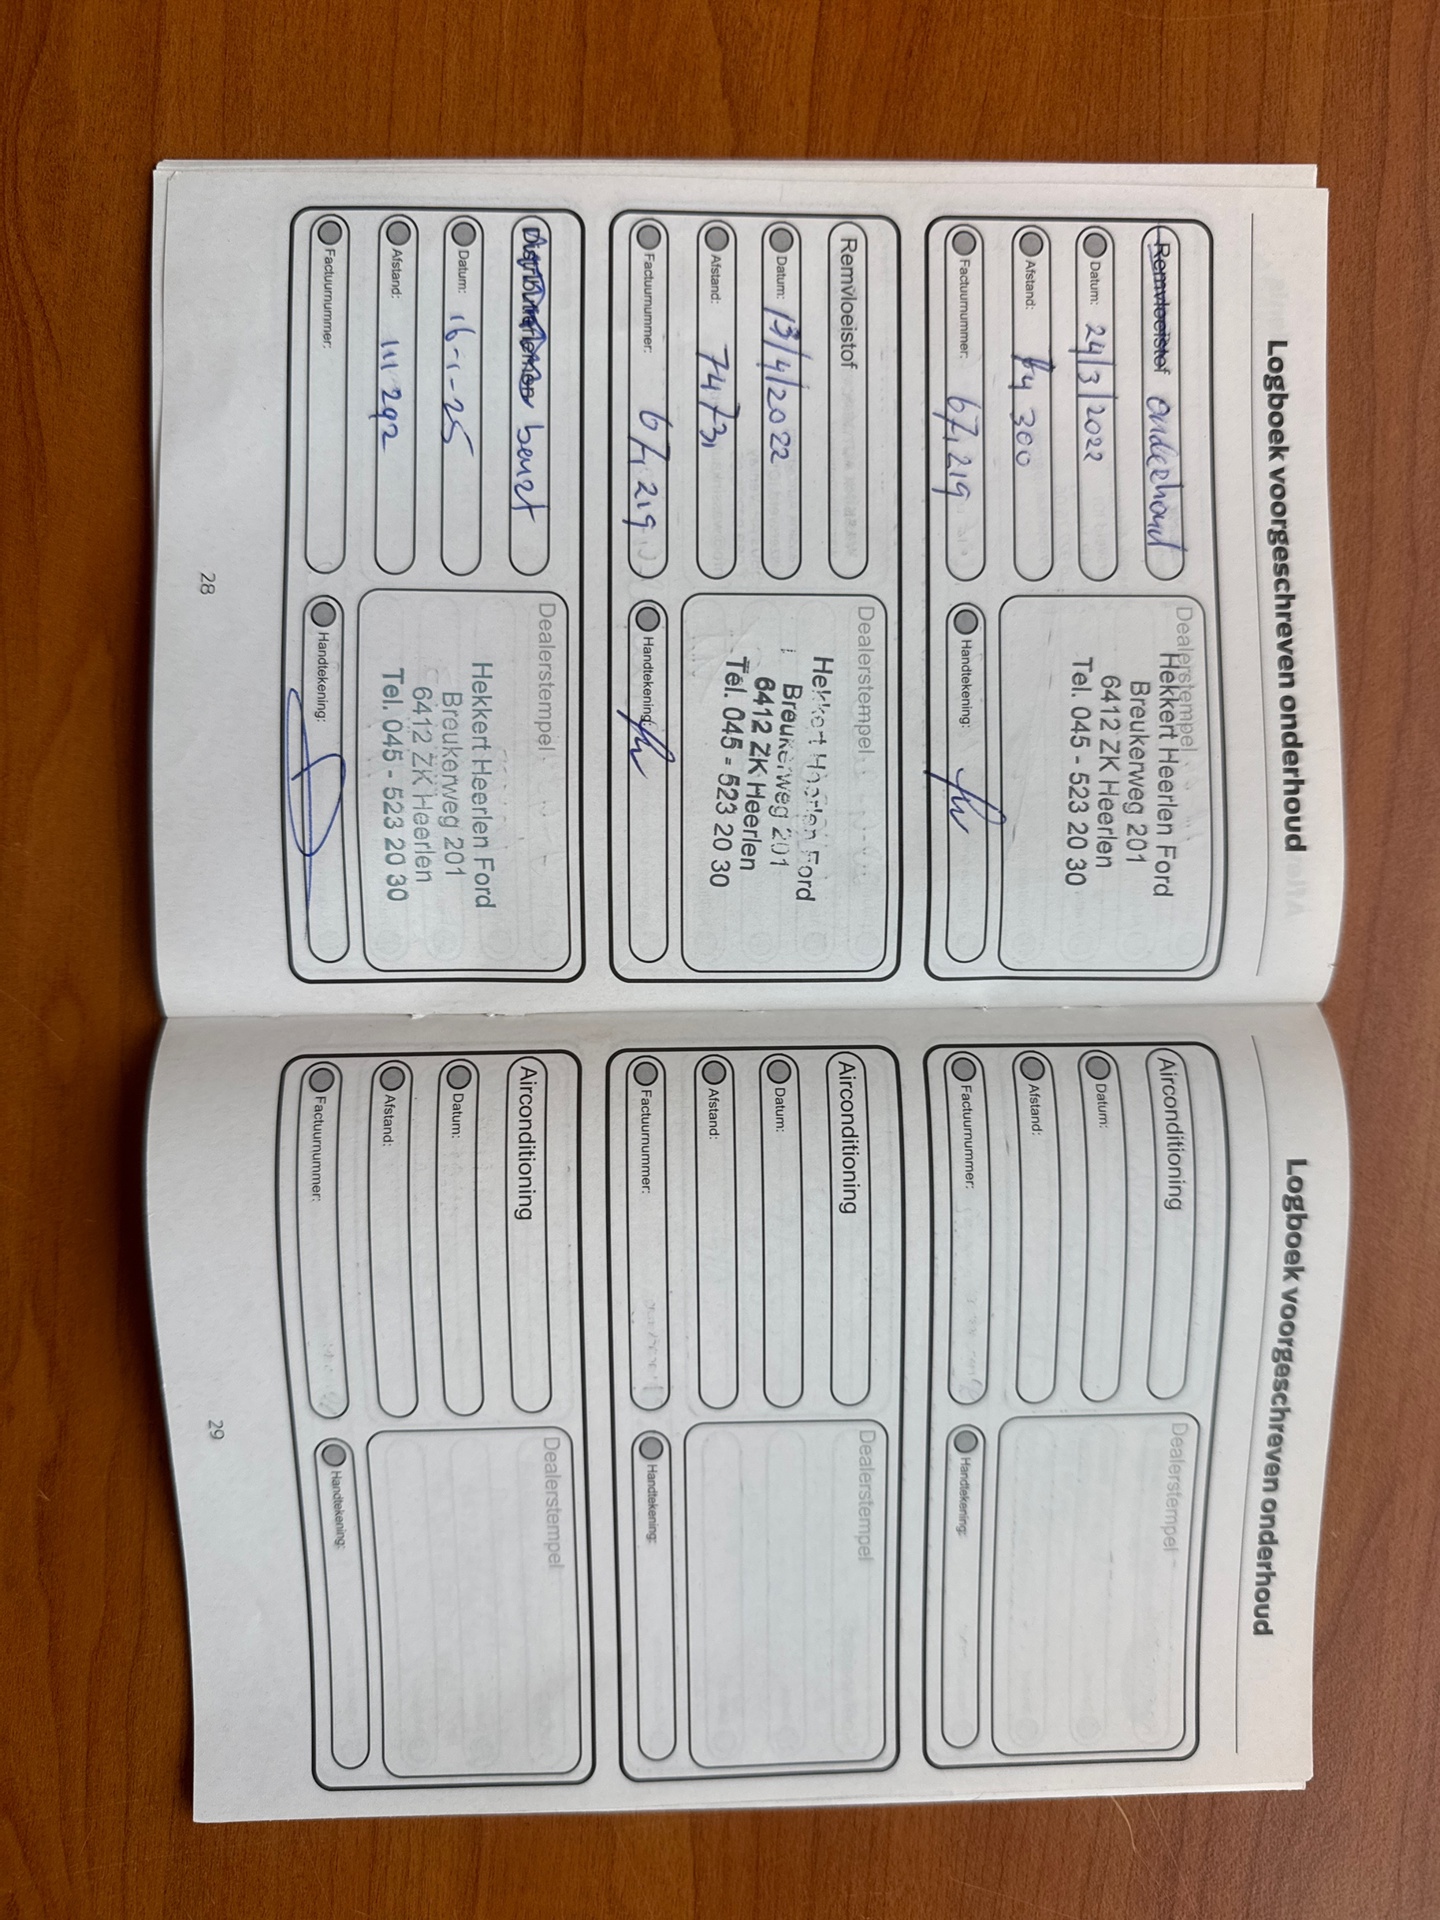 Logboek voorgeschreven onderhoud
Remvloeistof onderhoud
Datum: 24/3/2022
Afstand: 74 300
Factuurnummer: 67,219
Dealerstempel
Hekkert Heerlen Ford
Breukerweg 201
6412 ZK Heerlen
Tel. 045 - 523 20 30
Handtekening:
Remvloeistof
Datum: 13/4/2022
Afstand: 74731
Factuurnummer: 67,219
Dealerstempel
Hekkert Heerlen Ford
Breukerweg 201
6412 ZK Heerlen
Tel. 045 - 523 20 30
Handtekening:
Distributieriemen beurt
Datum: 16-1-25
Afstand: 111 292
Factuurnummer:
Dealerstempel
Hekkert Heerlen Ford
Breukerweg 201
6412 ZK Heerlen
Tel. 045 - 523 20 30
Handtekening:
28
Logboek voorgeschreven onderhoud
Airconditioning
Datum:
Afstand:
Factuurnummer:
Dealerstempel
Handtekening:
Airconditioning
Datum:
Afstand:
Factuurnummer:
Dealerstempel
Handtekening:
Airconditioning
Datum:
Afstand:
Factuurnummer:
Dealerstempel
Handtekening:
29